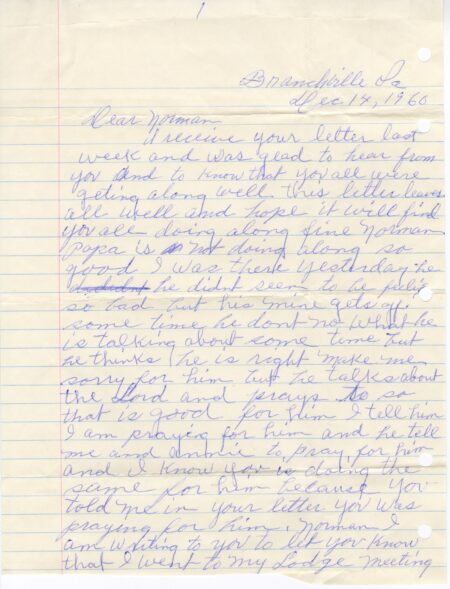 1
Branchville
Dec 14, 1960
Dear Norman
I receive your letter last
week and was glad to hear from
you and to know that you all were
geting along well this letter leaves
all well and hope it will find
you all doing along fine Norman
Papa is not doing along so
good I was there yesterday he
he didnt seem to be
so bad but his mine gets
some time he dont no what he
is talking about some time but
he thinks he is right make me
sorry for him but he talks about
the Lord and prays so so
that is good for him I tell him
I am praying for him and he tell
me and annie to pray for him
and I know you is doing the
same for him because you
told me in your letter you was
praying for him, Norman I
am writing to you to let you know
that I went to my Lodge meeting